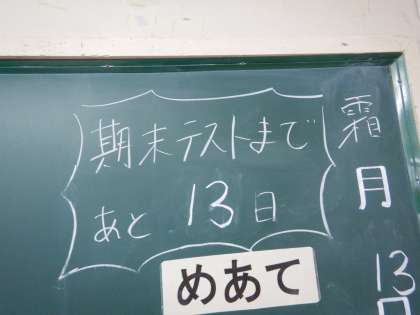 期末テストまで
あと 13日
めあて
霜月
13日